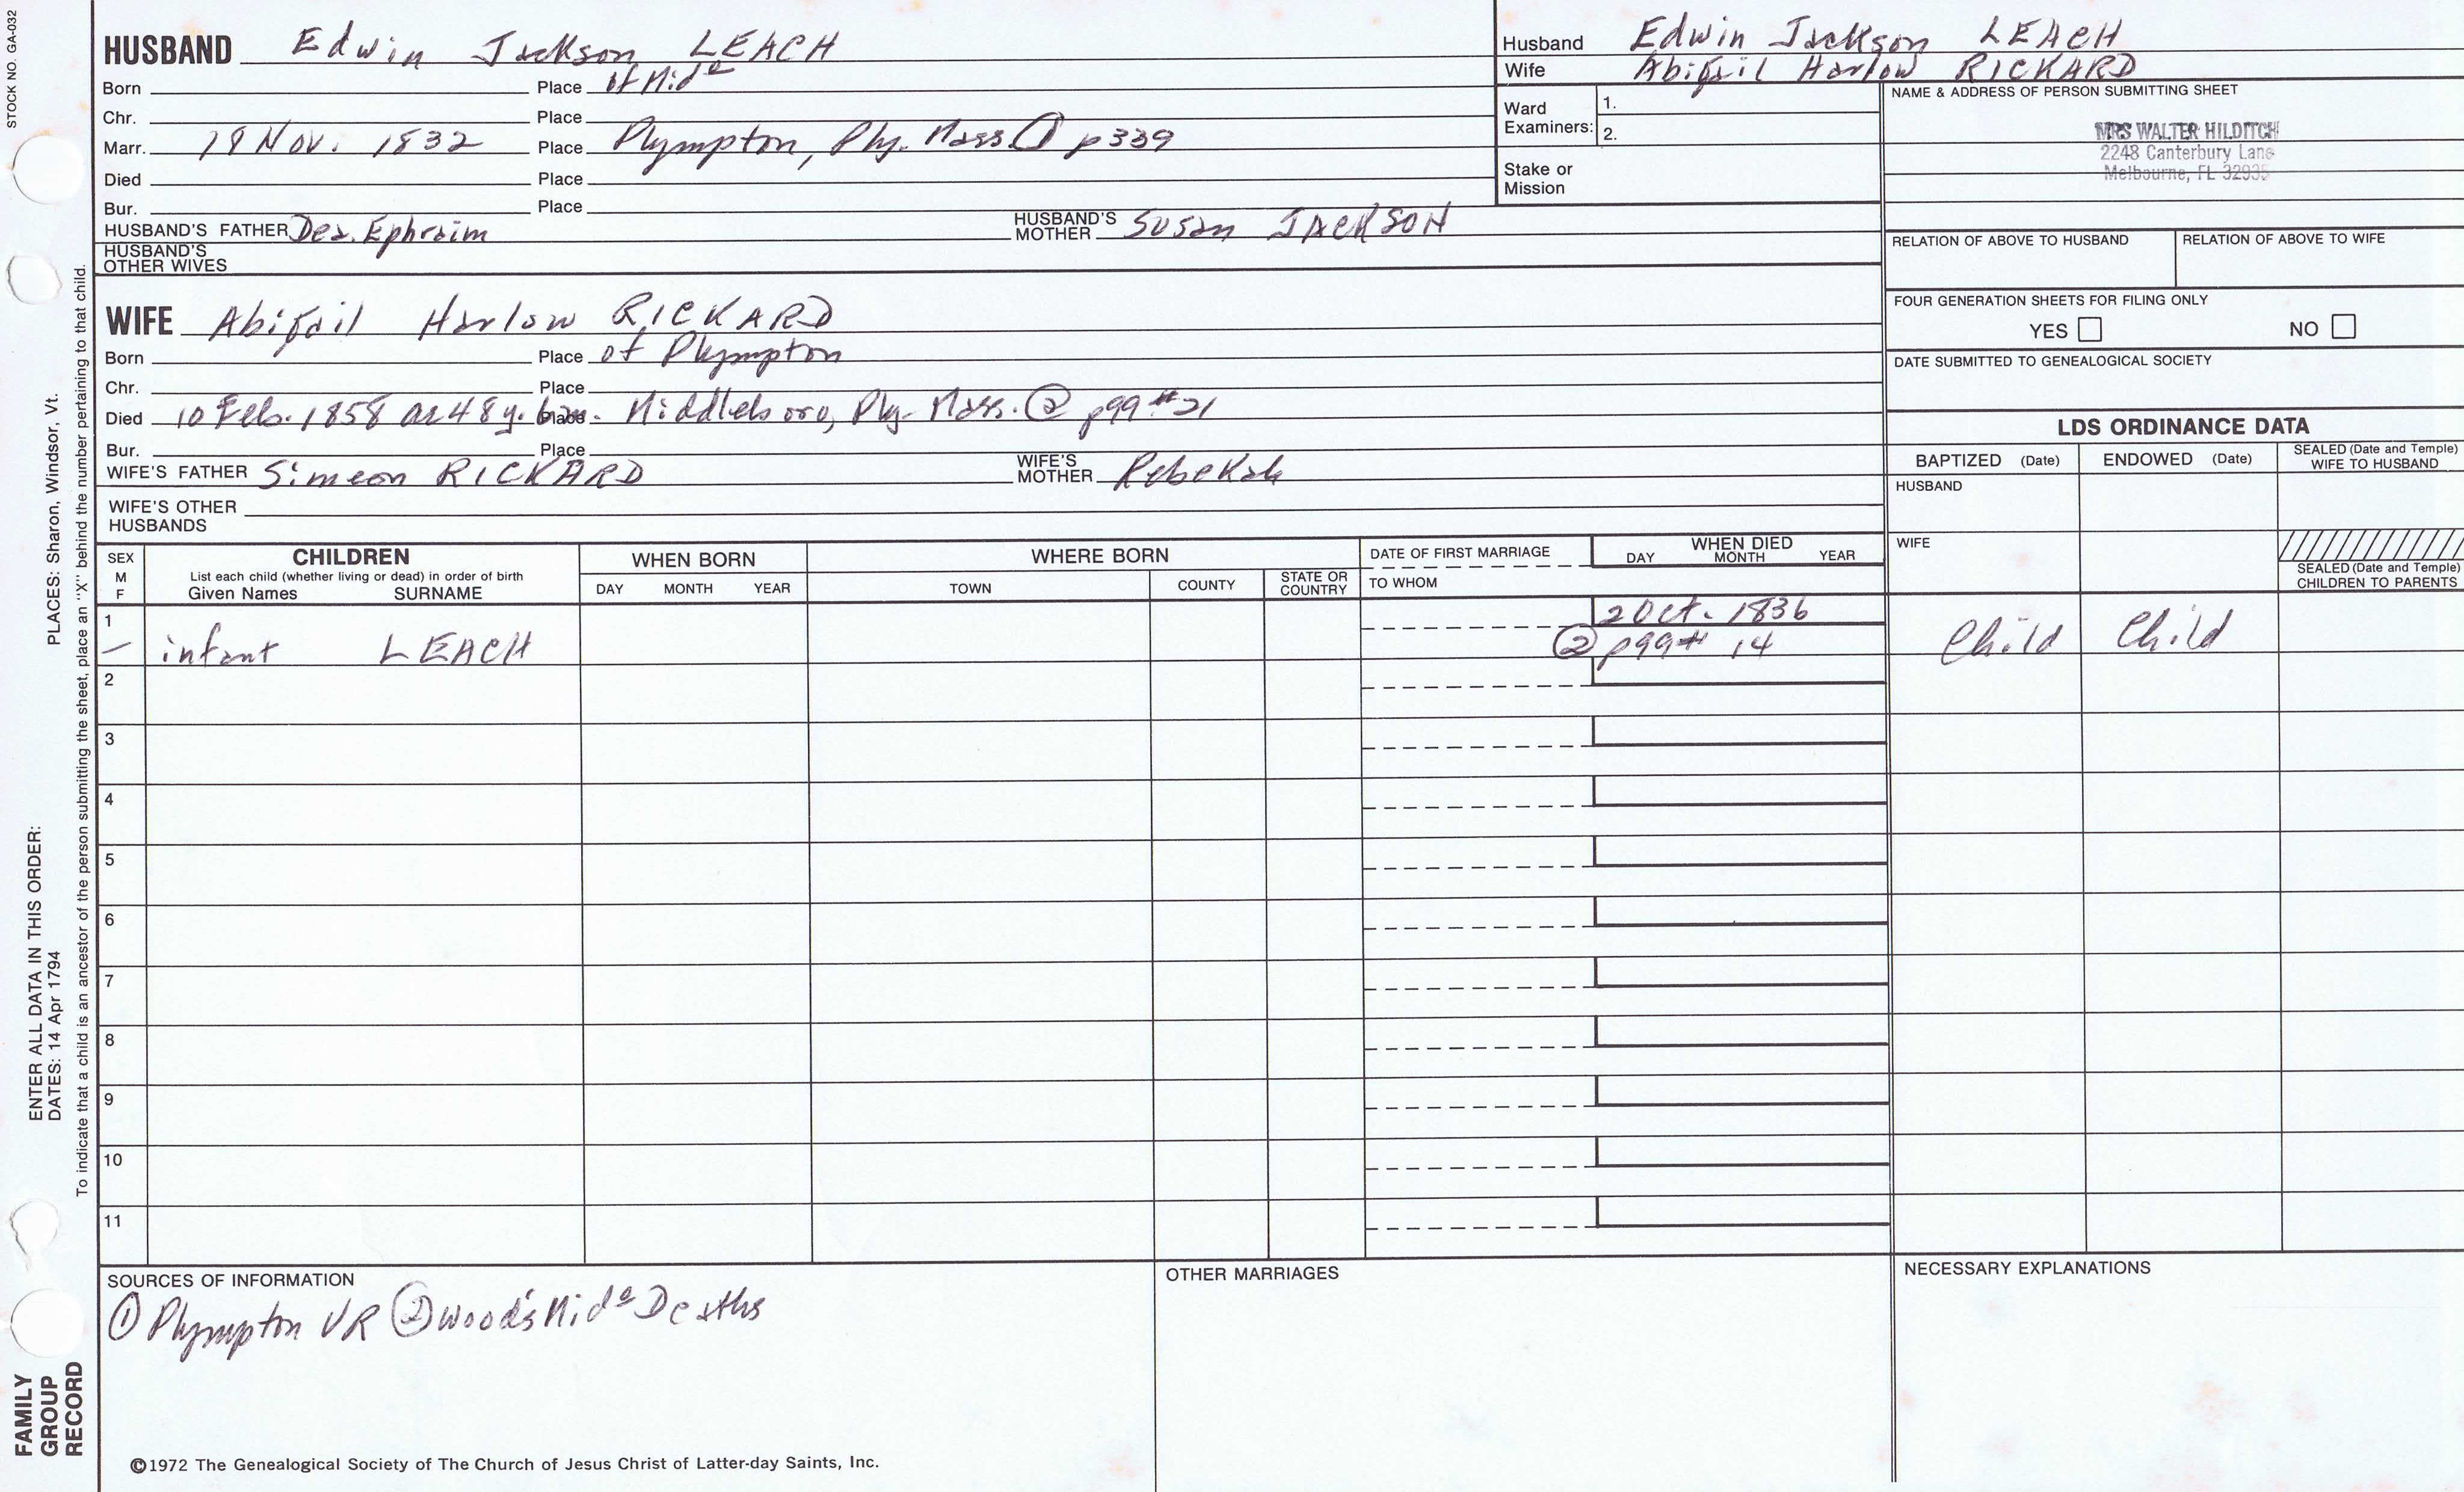 STOCK NO. GA-032
HUSBAND Edwin Jackson LEACH
Born Place of Midᵉ
Chr. Place
Marr. 18 Nov. 1832 Place Plympton, Ply. Mass. ① p339
Died Place
Bur. Place
HUSBAND'S FATHER Dea. Ephraim HUSBAND'S MOTHER Susan JACKSON
HUSBAND'S OTHER WIVES
Husband Edwin Jackson LEACH
Wife Abigail Harlow RICKARD
Ward Examiners: 1.
2.
Stake or Mission
NAME & ADDRESS OF PERSON SUBMITTING SHEET
MRS WALTER HILDITCH
2248 Canterbury Lane
Melbourne, FL 32935
RELATION OF ABOVE TO HUSBAND RELATION OF ABOVE TO WIFE
FOUR GENERATION SHEETS FOR FILING ONLY
YES NO
DATE SUBMITTED TO GENEALOGICAL SOCIETY
WIFE Abigail Harlow RICKARD
Born Place of Plympton
Chr. Place
Died 10 Feb. 1858 ae 48 y. 6 m. Place Middleboro, Ply. Mass. ② p99 #21
Bur. Place
WIFE'S FATHER Simeon RICKARD WIFE'S MOTHER Rebekah
WIFE'S OTHER HUSBANDS
LDS ORDINANCE DATA
BAPTIZED (Date) ENDOWED (Date) SEALED (Date and Temple) WIFE TO HUSBAND
HUSBAND
WIFE
SEALED (Date and Temple) CHILDREN TO PARENTS
SEX M F
CHILDREN
List each child (whether living or dead) in order of birth
Given Names SURNAME
WHEN BORN
DAY MONTH YEAR
WHERE BORN
TOWN COUNTY STATE OR COUNTRY
DATE OF FIRST MARRIAGE
TO WHOM
WHEN DIED
DAY MONTH YEAR
1 2 Oct. 1836
– infant LEACH ② p99# 14 Child Child
2
3
4
5
6
7
8
9
10
11
SOURCES OF INFORMATION
① Plympton VR ② Wood's Midᵉ Deaths
OTHER MARRIAGES
NECESSARY EXPLANATIONS
©1972 The Genealogical Society of The Church of Jesus Christ of Latter-day Saints, Inc.
FAMILY
GROUP
RECORD
ENTER ALL DATA IN THIS ORDER:
DATES: 14 Apr 1794 PLACES: Sharon, Windsor, Vt.
To indicate that a child is an ancestor of the person submitting the sheet, place an "X" behind the number pertaining to that child.